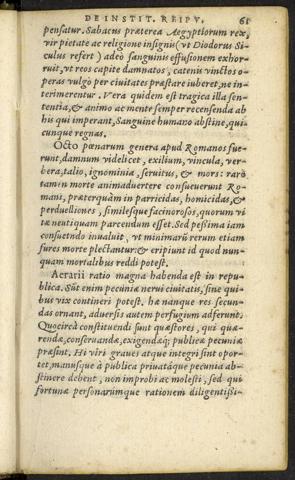 DE INSTIT. REIPV. 61
pensatur. Sabacus præterea Aegyptiorum rex,
vir pietate ac religione insignis (vt Diodorus Si-
culus refert) adeò sanguinis effusionem exhor-
ruit, vt reos capite damnatos, catenis vinctos o-
peras vulgò per ciuitates præstare iuberet, ne in-
terimerentur. Vera quidem est tragica illa sen-
tentia, & animo ac mente semper recensenda ab
his qui imperant, Sanguine humano abstine, qui-
cunque regnas.
Octo pœnarum genera apud Romanos fue-
runt, damnum videlicet, exilium, vincula, ver-
bera, talio, ignominia, seruitus, & mors: rarò
tamen morte animaduertere consueuerunt Ro-
mani, præterquàm in parricidas, homicidas, &
perduelliones, similesque facinorosos, quorum vi-
tæ neutiquam parcendum esset. Sed pessima iam
consuetudo inualuit, vt minimarū rerum etiam
fures morte plectantur: & eripiunt id quod nun-
quam mortalibus reddi potest.
Aerarii ratio magna habenda est in repu-
blica. Sūt enim pecuniæ nerui ciuitatis, sine qui-
bus vix contineri potest. hæ nanque res secun-
das ornant, aduersis autem perfugium adferunt.
Quocircà constituendi sunt quæstores, qui quæ-
rendæ, conseruandæ, exigendæq; publicæ pecuniæ
præsint. Hi viri graues atque integri sint opor-
tet, manusque à publica priuatáque pecunia ab-
stinere debent, non improbi ac molesti, sed qui
fortunæ personarúmque rationem diligentissi-